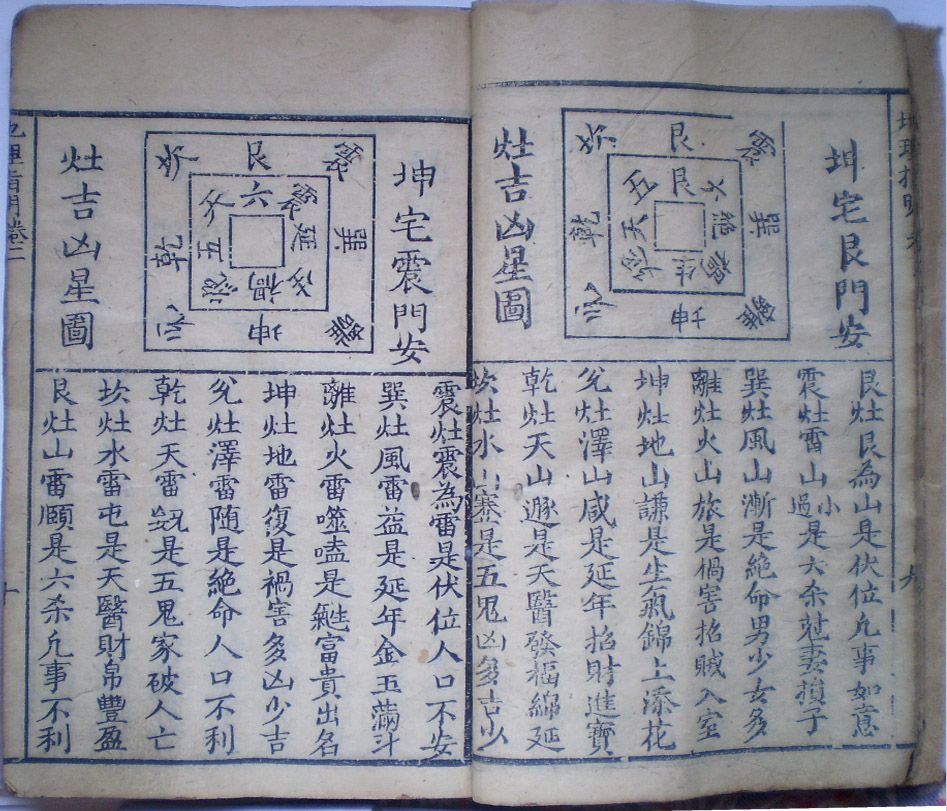 坤宅艮門安
灶吉凶星圖
震
艮
坎
巽
乾
離
坤
兌
六
艮
五
絕
天
禍
生
艮灶艮為山是伏位凢事如意
震灶雷山小過是六杀尅妻損子
巽灶風山漸是絕命男少女多
離灶火山旅是禍害招賊入室
坤灶地山謙是生氣錦上添花
兌灶澤山咸是延年招財進寶
乾灶天山遯是天醫發福綿延
坎灶水山蹇是五鬼凶多吉少
九
坤宅震門安
灶吉凶星圖
震
艮
坎
巽
乾
離
坤
兌
震
六
天
延
五
禍
震灶震為雷是伏位人口不安
巽灶風雷益是延年金玉滿斗
離灶火雷噬嗑是生氣富貴出名
坤灶地雷復是禍害多凶少吉
兌灶澤雷随是絕命人口不利
乾灶天雷是五鬼家破人亡
坎灶水雷屯是天醫財帛豐盈
艮灶山雷頤是六杀凢事不利
卷二
十